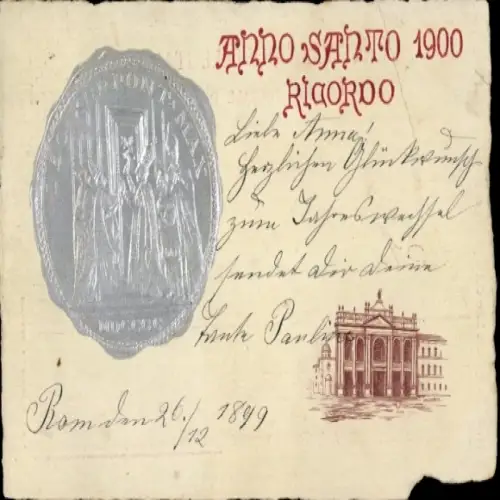 ANNO SANTO 1900
RICORDO
PONT MAX
MDCCCC
Liebe Anna!
Herzlichen Glückwunsch
zum Jahreswechsel
sendet Dir Deine
Tante Pauline
Rom den 26./12 1899